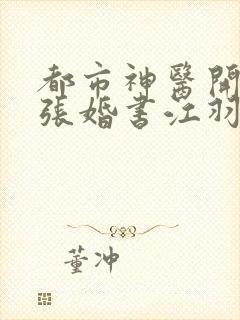 都市神醫開
張婚書江羽
董冲